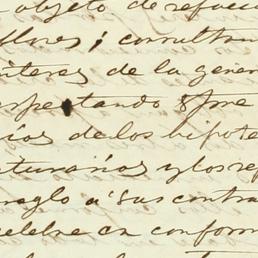 objeto de refue
flores; consulta
interes de la gener
respetando spre
rios de los hipote
enturarios y los rep
reglo a sus contra
celebre en conform